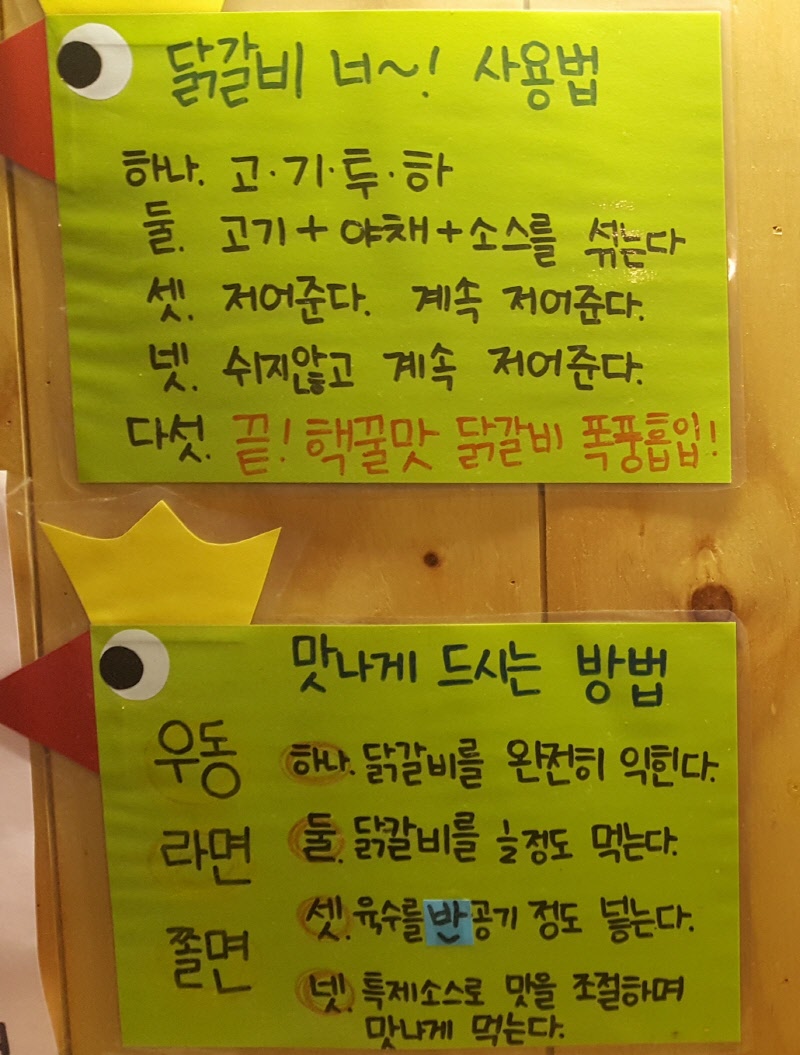 닭갈비 너~! 사용법
하나. 고·기·투·하
둘. 고기+야채+소스를 섞는다
셋. 저어준다. 계속 저어준다.
넷. 쉬지않고 계속 저어준다.
다섯. 끝! 핵꿀맛 닭갈비 폭풍흡입!
맛나게 드시는 방법
우동
라면
쫄면
하나. 닭갈비를 완전히 익힌다.
둘. 닭갈비를 정도 먹는다.
셋. 육수를 반공기 정도 넣는다.
넷. 특제소스로 맛을 조절하며
맛나게 먹는다.